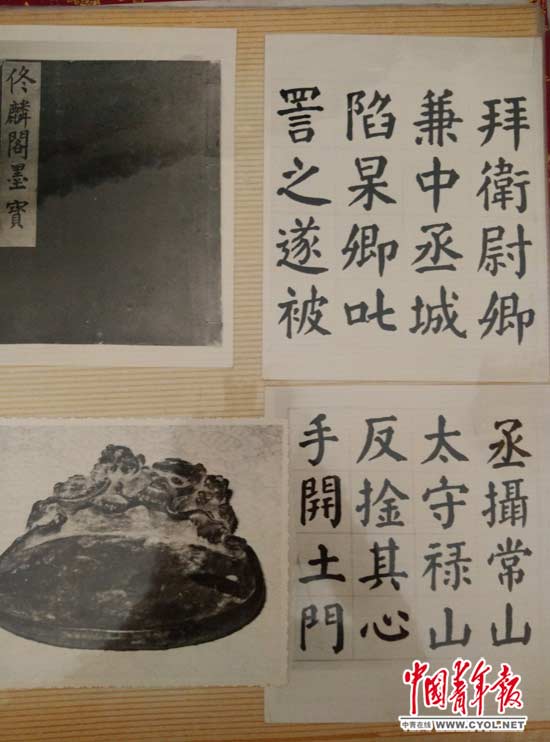 佟麟閣墨寶
拜衛尉卿
兼中丞城
陷杲卿叱
詈之遂被
丞攝常山
太守禄山
反捦其心
手開土門
中国青年报
中青在线 WWW.CYOL.NET